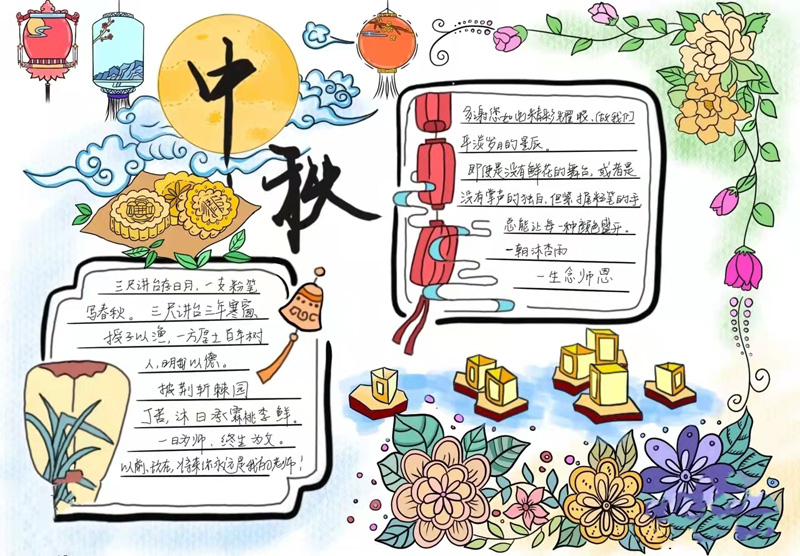 中秋
多谢您如此精彩耀眼、做我们
平淡岁月的星辰。
即使是没有鲜花的舞台,或者是
没有掌声的独白,但紧握粉笔的手
总能让每一种颜色盛开。
一朝沐杏雨
一生念师恩
三尺讲台存日月,一支粉笔
写春秋。三尺讲台三年寒窗
授予以渔,一方厚土百年树
人,明我以德。
披荆斩棘园
丁苦,沐日承霖桃李鲜。
一日为师,终生为父。
以前,现在,将来你永远是我的老师!